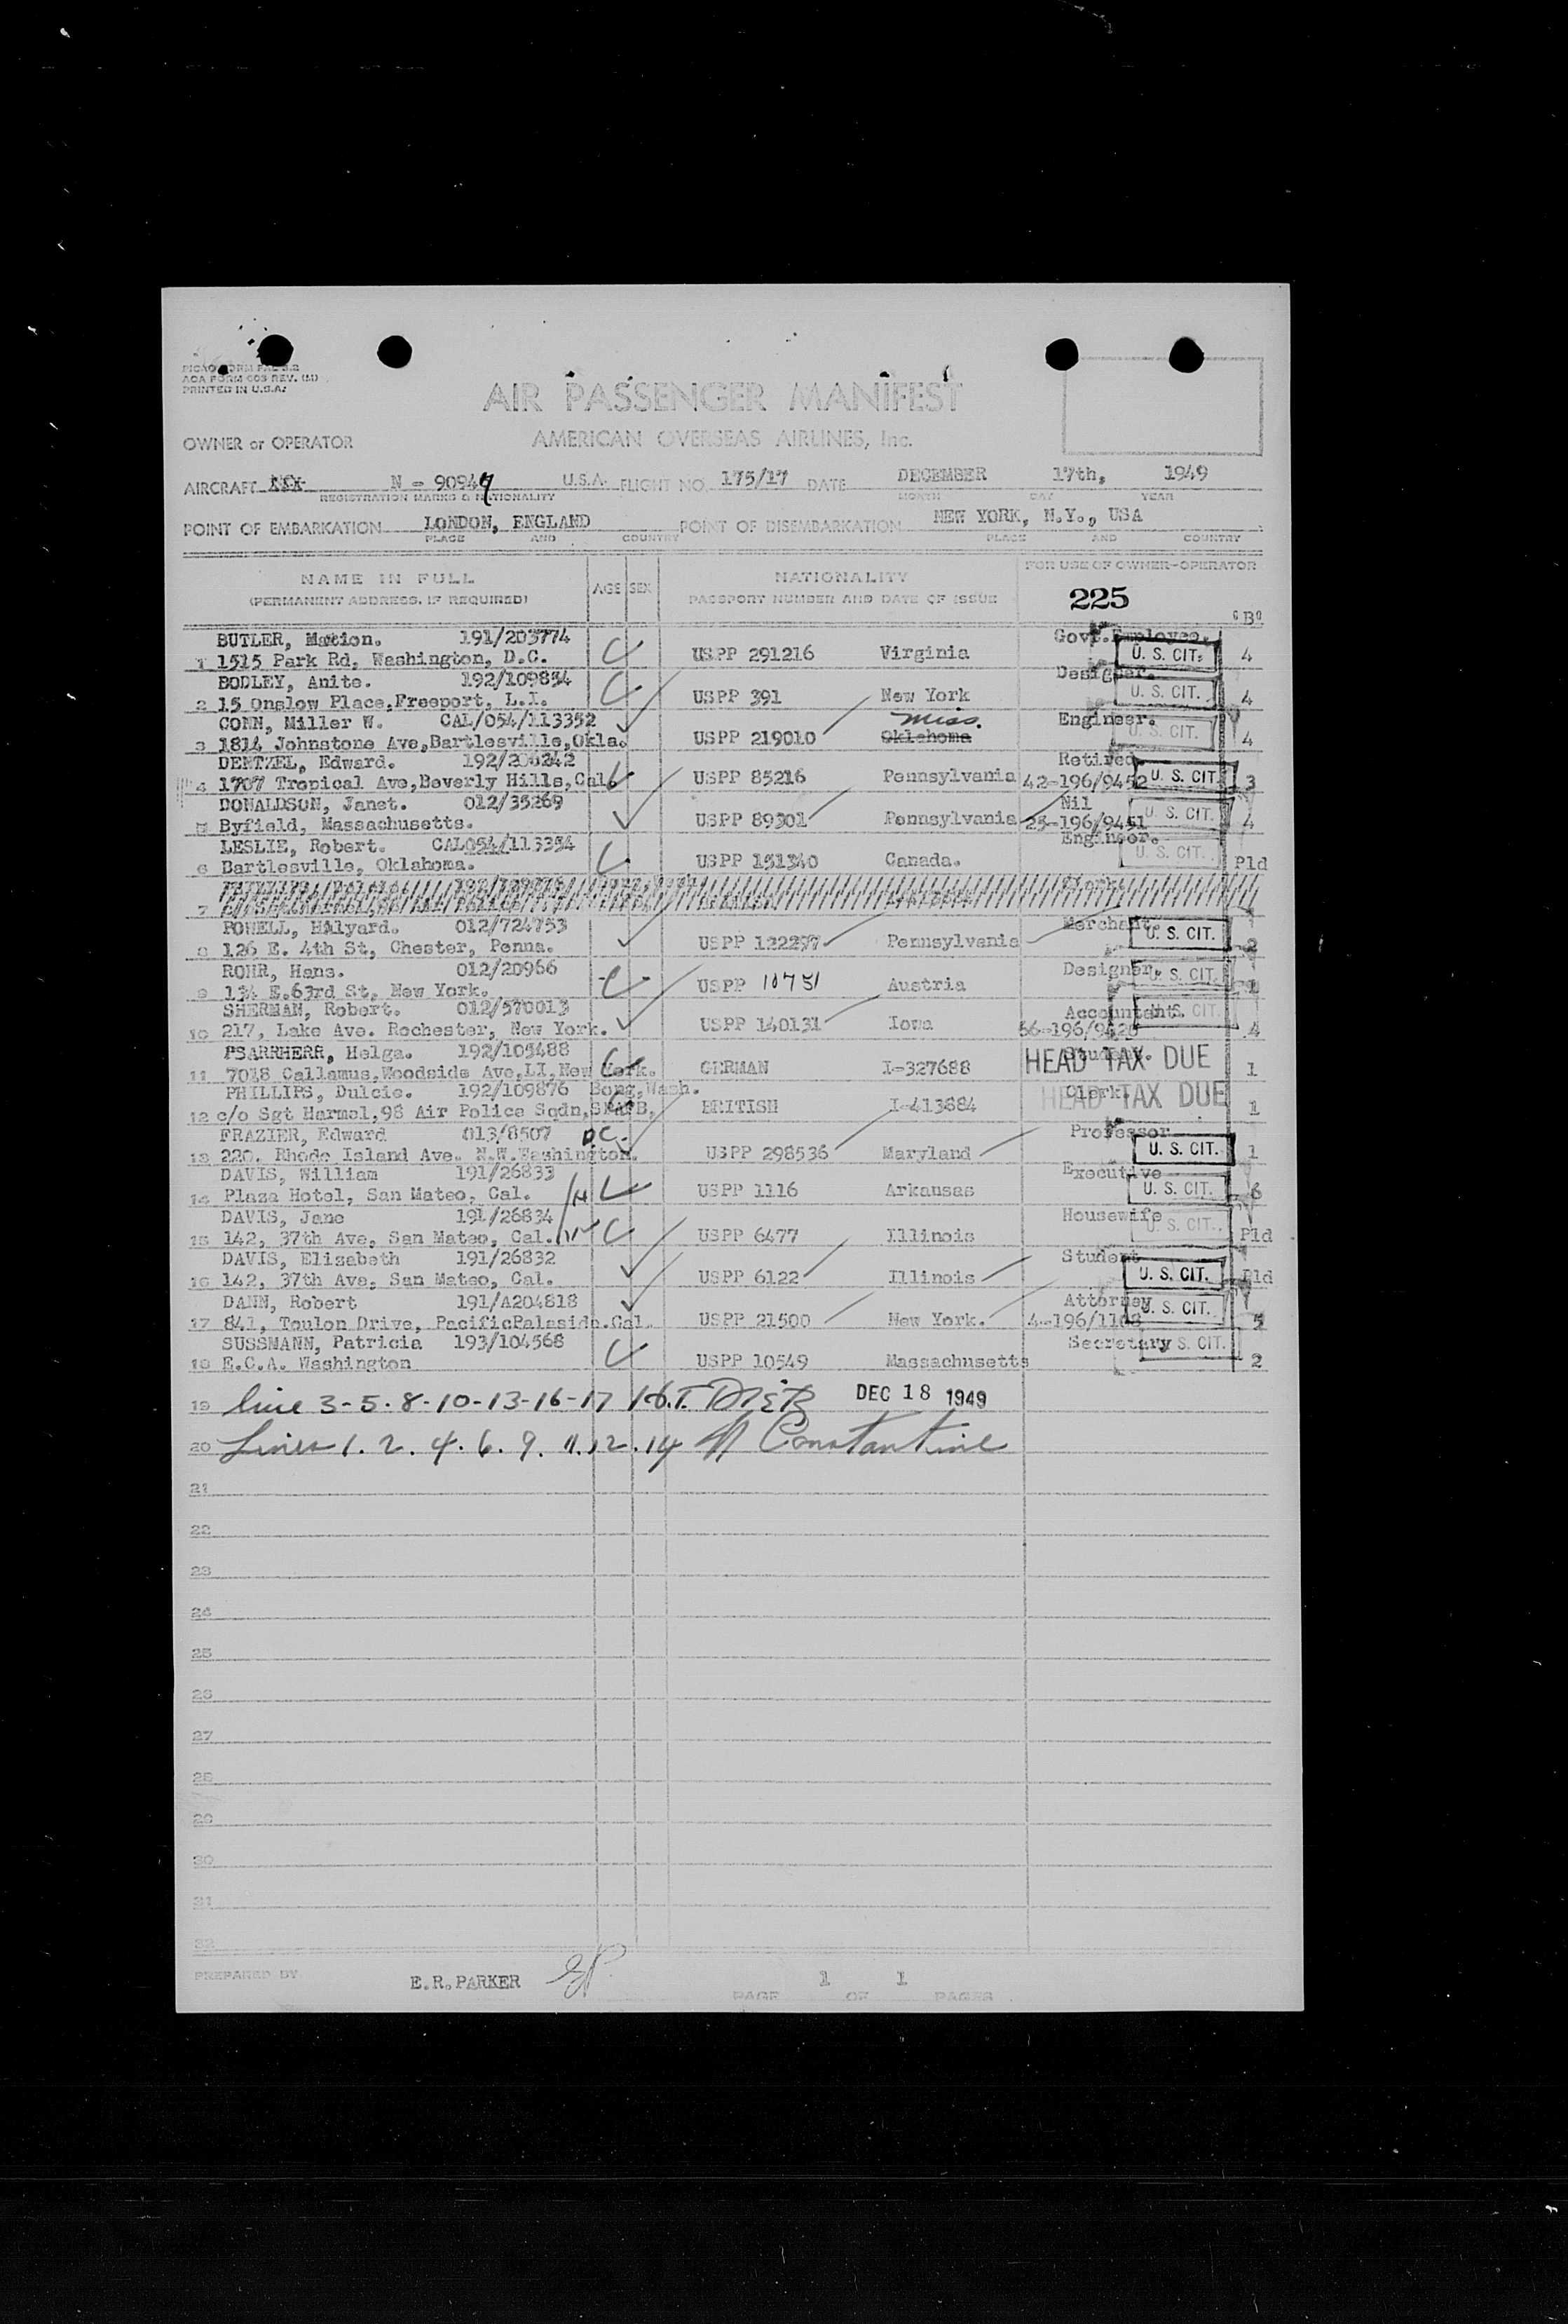 PRINTED IN U.S.A.
AIR PASSENGER MANIFEST
OWNER or OPERATOR AMERICAN OVERSEAS AIRLINES, Inc.
AIRCRAFT N - 90947 U.S.A. FLIGHT NO. 175/17 DATE DECEMBER 17th, 1949
REGISTRATION MARKS & NATIONALITY MONTH DAY YEAR
POINT OF EMBARKATION LONDON, ENGLAND POINT OF DISEMBARKATION NEW YORK, N.Y., USA
PLACE AND COUNTRY PLACE AND COUNTRY
NAME IN FULL AGE SEX NATIONALITY FOR USE OF OWNER-OPERATOR
(PERMANENT ADDRESS, IF REQUIRED) PASSPORT NUMBER AND DATE OF ISSUE 225 "B"
BUTLER, Marion. 191/203774 Govt.Employee.
1 1515 Park Rd, Washington, D.C. C USPP 291216 Virginia U. S. CIT. 4
BODLEY, Anite. 192/109834 Designer.
2 15 Onslow Place,Freeport, L.I. C USPP 391 New York U. S. CIT. 4
CONN, Miller W. CAL/054/113352 Miss. Engineer.
3 1814 Johnstone Ave,Bartlesville,Okla. USPP 219010 Oklahoma U. S. CIT. 4
DENTZEL, Edward. 192/206242 Retired.
4 1707 Tropical Ave,Beverly Hills,Cal. USPP 85216 Pennsylvania 42-196/9452 U. S. CIT. 3
DONALDSON, Janet. 012/35269 Nil
5 Byfield, Massachusetts. USPP 89301 Pennsylvania 25-196/9451 U. S. CIT. 4
LESLIE, Robert. CAL054/113354 Engineer.
6 Bartlesville, Oklahoma. C USPP 151340 Canada. U. S. CIT. Pld
7
POWELL, Halyard. 012/724753 Merchant.
8 126 E. 4th St, Chester, Penna. USPP 122297 Pennsylvania U. S. CIT. 2
ROHR, Hans. 012/20966 Designer.
9 134 E.63rd St, New York. C USPP 10751 Austria U. S. CIT. 1
SHERMAN, Robert. 012/570013 Accountant.
10 217, Lake Ave. Rochester, New York. USPP 140131 Iowa 56-196/9428 U. S. CIT. 4
PSARRHERR, Helga. 192/105488 Student.
11 7018 Callamus,Woodside Ave,LI,New York. C GERMAN I-327688 HEAD TAX DUE 1
PHILLIPS, Dulcie. 192/109876 Bong,Wash. Clerk.
12 c/o Sgt Harmel,98 Air Police Sqdn, BRITISH I-413684 HEAD TAX DUE 1
FRAZIER, Edward 013/8507 D.C. Professor
13 220. Rhode Island Ave. N.W.Washington. USPP 298536 Maryland U. S. CIT. 1
DAVIS, William 191/26833 Executive
14 Plaza Hotel, San Mateo, Cal. C USPP 1116 Arkansas U. S. CIT. 6
DAVIS, Jane 191/26834 Housewife
15 142, 37th Ave, San Mateo, Cal. C USPP 6477 Illinois U. S. CIT. Pld
DAVIS, Elizabeth 191/26832 Student
16 142, 37th Ave, San Mateo, Cal. USPP 6122 Illinois U. S. CIT. Pld
DANN, Robert 191/A204818 Attorney
17 841, Toulon Drive, PacificPalaside.Cal. USPP 21500 New York. 4-196/1108 U. S. CIT. 5
SUSSMANN, Patricia 193/104568 Secretary
18 E.C.A. Washington C USPP 10549 Massachusetts U. S. CIT. 2
19 Line 3-5-8-10-13-16-17 DEC 18 1949
20 Lines 1. 2. 4. 6. 9. 11. 12. 14 Constantine
21
22
23
24
25
26
27
28
29
30
31
32
PREPARED BY E.R.PARKER
PAGE 1 OF 1 PAGES